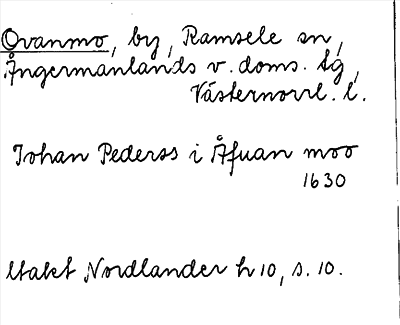 Ovanmo, by, Ramsele sn,
Ångermanlands v. doms. tg,
Västernorrl. l.
Johan Pederss i Åfuan moo
1630
Utakt Nordlander h 10, s. 10.